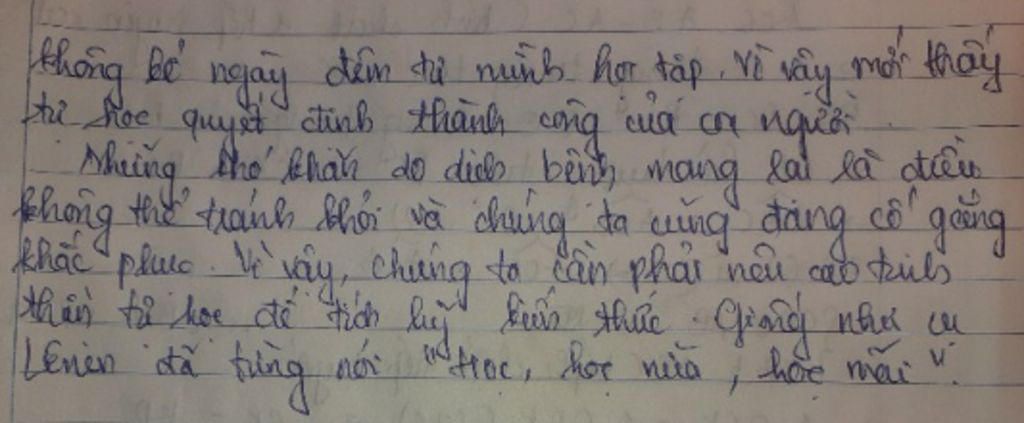 không kể ngày đêm tự mình học tập. Vì vậy mới thấy
tự học quyết định thành công của con người.
Những khó khăn do dịch bệnh mang lại là điều
không thể tránh khỏi và chúng ta cũng đang cố gắng
khắc phục. Vì vậy, chúng ta cần phải nêu cao tinh
thần tự học để tích luỹ kiến thức. Giống như cụ
Lênin đã từng nói "Học, học nữa, học mãi".